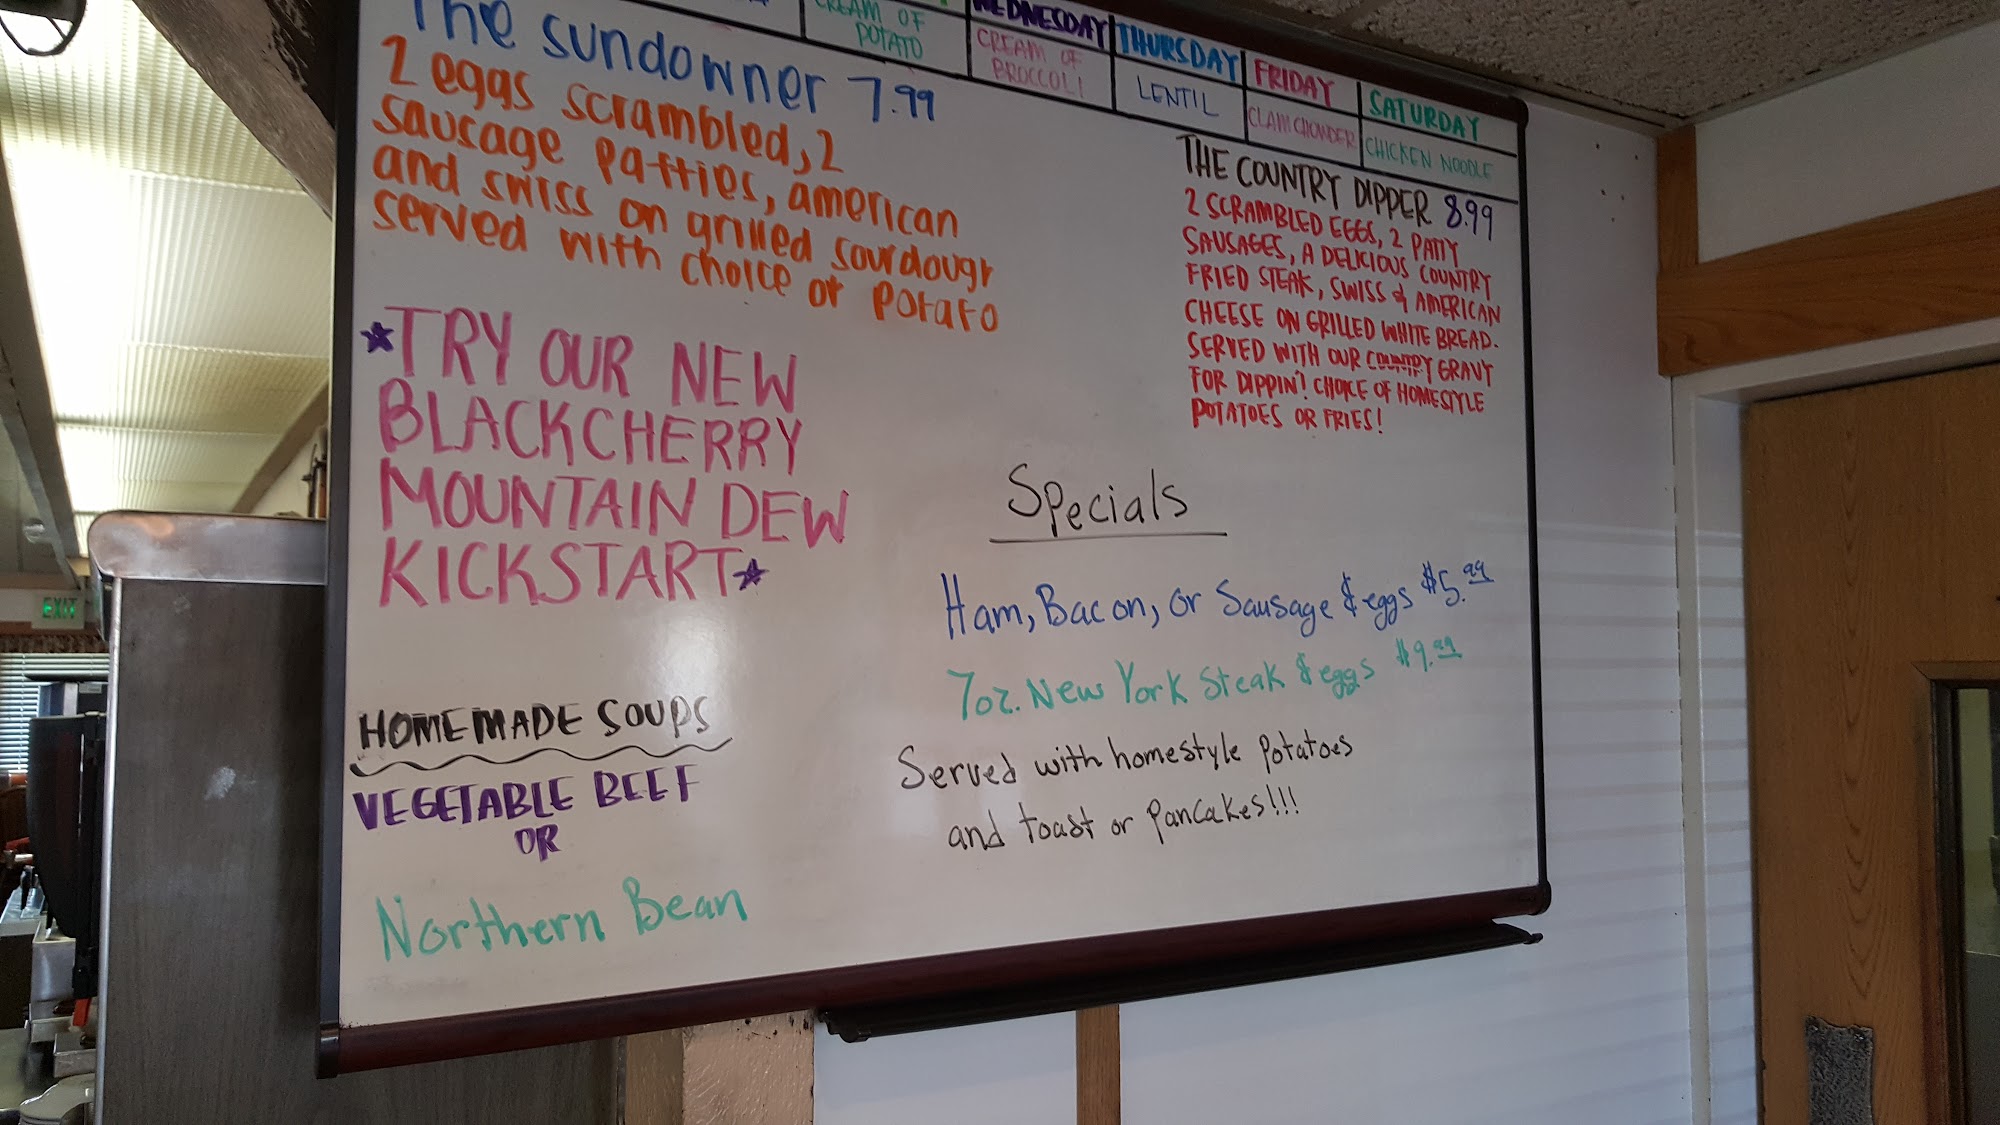 WEDNESDAY THURSDAY FRIDAY SATURDAY
CREAM OF
POTATO
CREAM OF
BROCCOLI
LENTIL
CLAM CHOWDER
CHICKEN NOODLE
The sundowner 7.99
2 eggs scrambled, 2
sausage patties, american
and swiss on grilled sourdough
served with choice of potato
THE COUNTRY DIPPER 8.99
2 SCRAMBLED EGGS, 2 PATTY
SAUSAGES, A DELICIOUS COUNTRY
FRIED STEAK, SWISS & AMERICAN
CHEESE ON GRILLED WHITE BREAD.
SERVED WITH OUR COUNTRY GRAVY
FOR DIPPIN'! CHOICE OF HOMESTYLE
POTATOES OR FRIES!
TRY OUR NEW
BLACKCHERRY
MOUNTAIN DEW
KICKSTART
Specials
Ham, Bacon, or Sausage & eggs $5.99
7oz. New York Steak & eggs $9.99
Served with homestyle potatoes
and toast or pancakes!!!
HOMEMADE SOUPS
VEGETABLE BEEF
OR
Northern Bean
EXIT